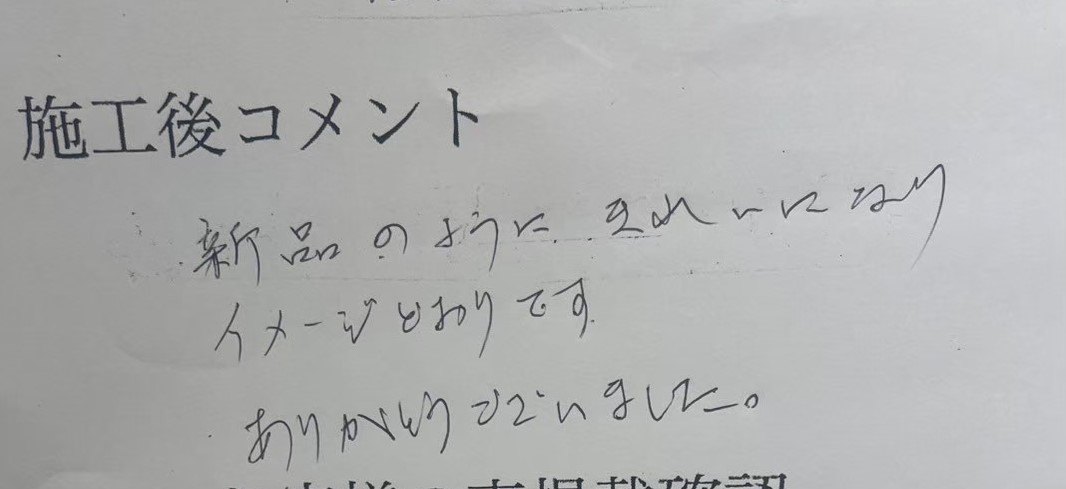 施工後コメント
新品のように きれいになり
イメージどおりです
ありがとうございました。